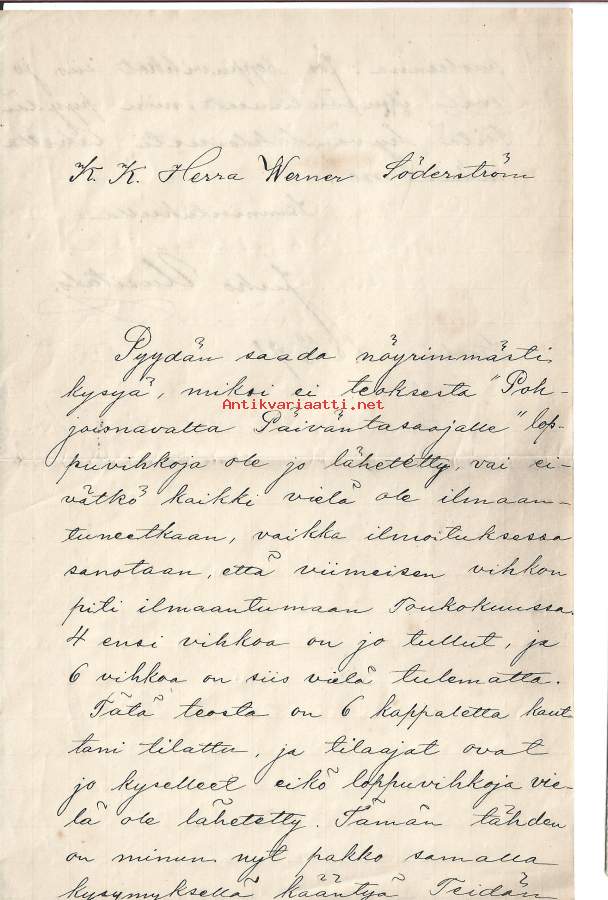 K. K. Herra Werner Söderström
Pyydän saada nöyrimmästi
kysyä, miksi ei teoksesta "Poh-
Antikvariaatti.net
joisnavalta Päiväntasaajalle" lop-
puvihkoja ole jo lähetetty, vai ei-
vätkö kaikki vielä ole ilmaan-
tuneetkaan, vaikka ilmoituksessa
sanotaan, että viimeisen vihkon
piti ilmaantumaan Toukokuussa.
4 ensi vihkoa on jo tullut, ja
6 vihkoa on siis vielä tulematta.
Tätä teosta on 6 kappaletta kaut
tani tilattu, ja tilaajat ovat
jo kyselleet eikö loppuvihkoja vie-
lä ole lähetetty. Tämän tähden
on minun nyt pakko samalla
kysymyksellä kääntyä Teidän